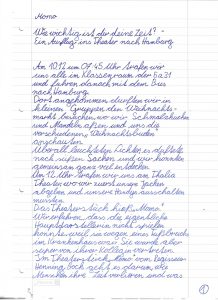 Momo
Wie wichtig ist dir deine Zeit? -
Ein Ausflug ins Theater nach Hamburg
Am 10.12 um 07.45 Uhr trafen wir
uns alle im Klassenraum der 6a 31
und fuhren danach mit dem Bus
nach Hamburg.
Dort angekommen durften wir in
kleinen Gruppen den Weihnachts-
markt besuchen, wo wir Schmalzkuchen
und Mandeln aßen und uns die
verschiedenen Weihnachtsbuden
anschauten.
Überall leuchteten Lichter, es duftete
nach süßen Sachen und wir konnten
gemeinsam ganz viel entdecken.
Um 12 Uhr trafen wir uns am Thalia
Theater wo wir zuerst unsere Jacken
abgeben und unsere Handys ausschalten
mussten.
Das Theaterstück hieß „Momo“.
Wir erfuhren, dass die eigentliche
Hauptdarstellerin nicht spielen
konnte, weil sie wegen eines
im Krankenhaus war. Sie wurde aber
super von einer Kollegin vertreten.
Im Theaterstück „Momo“ vom Regisseur
Henning Bock geht es darum, dass
Menschen ihre Zeit verlieren und was
1